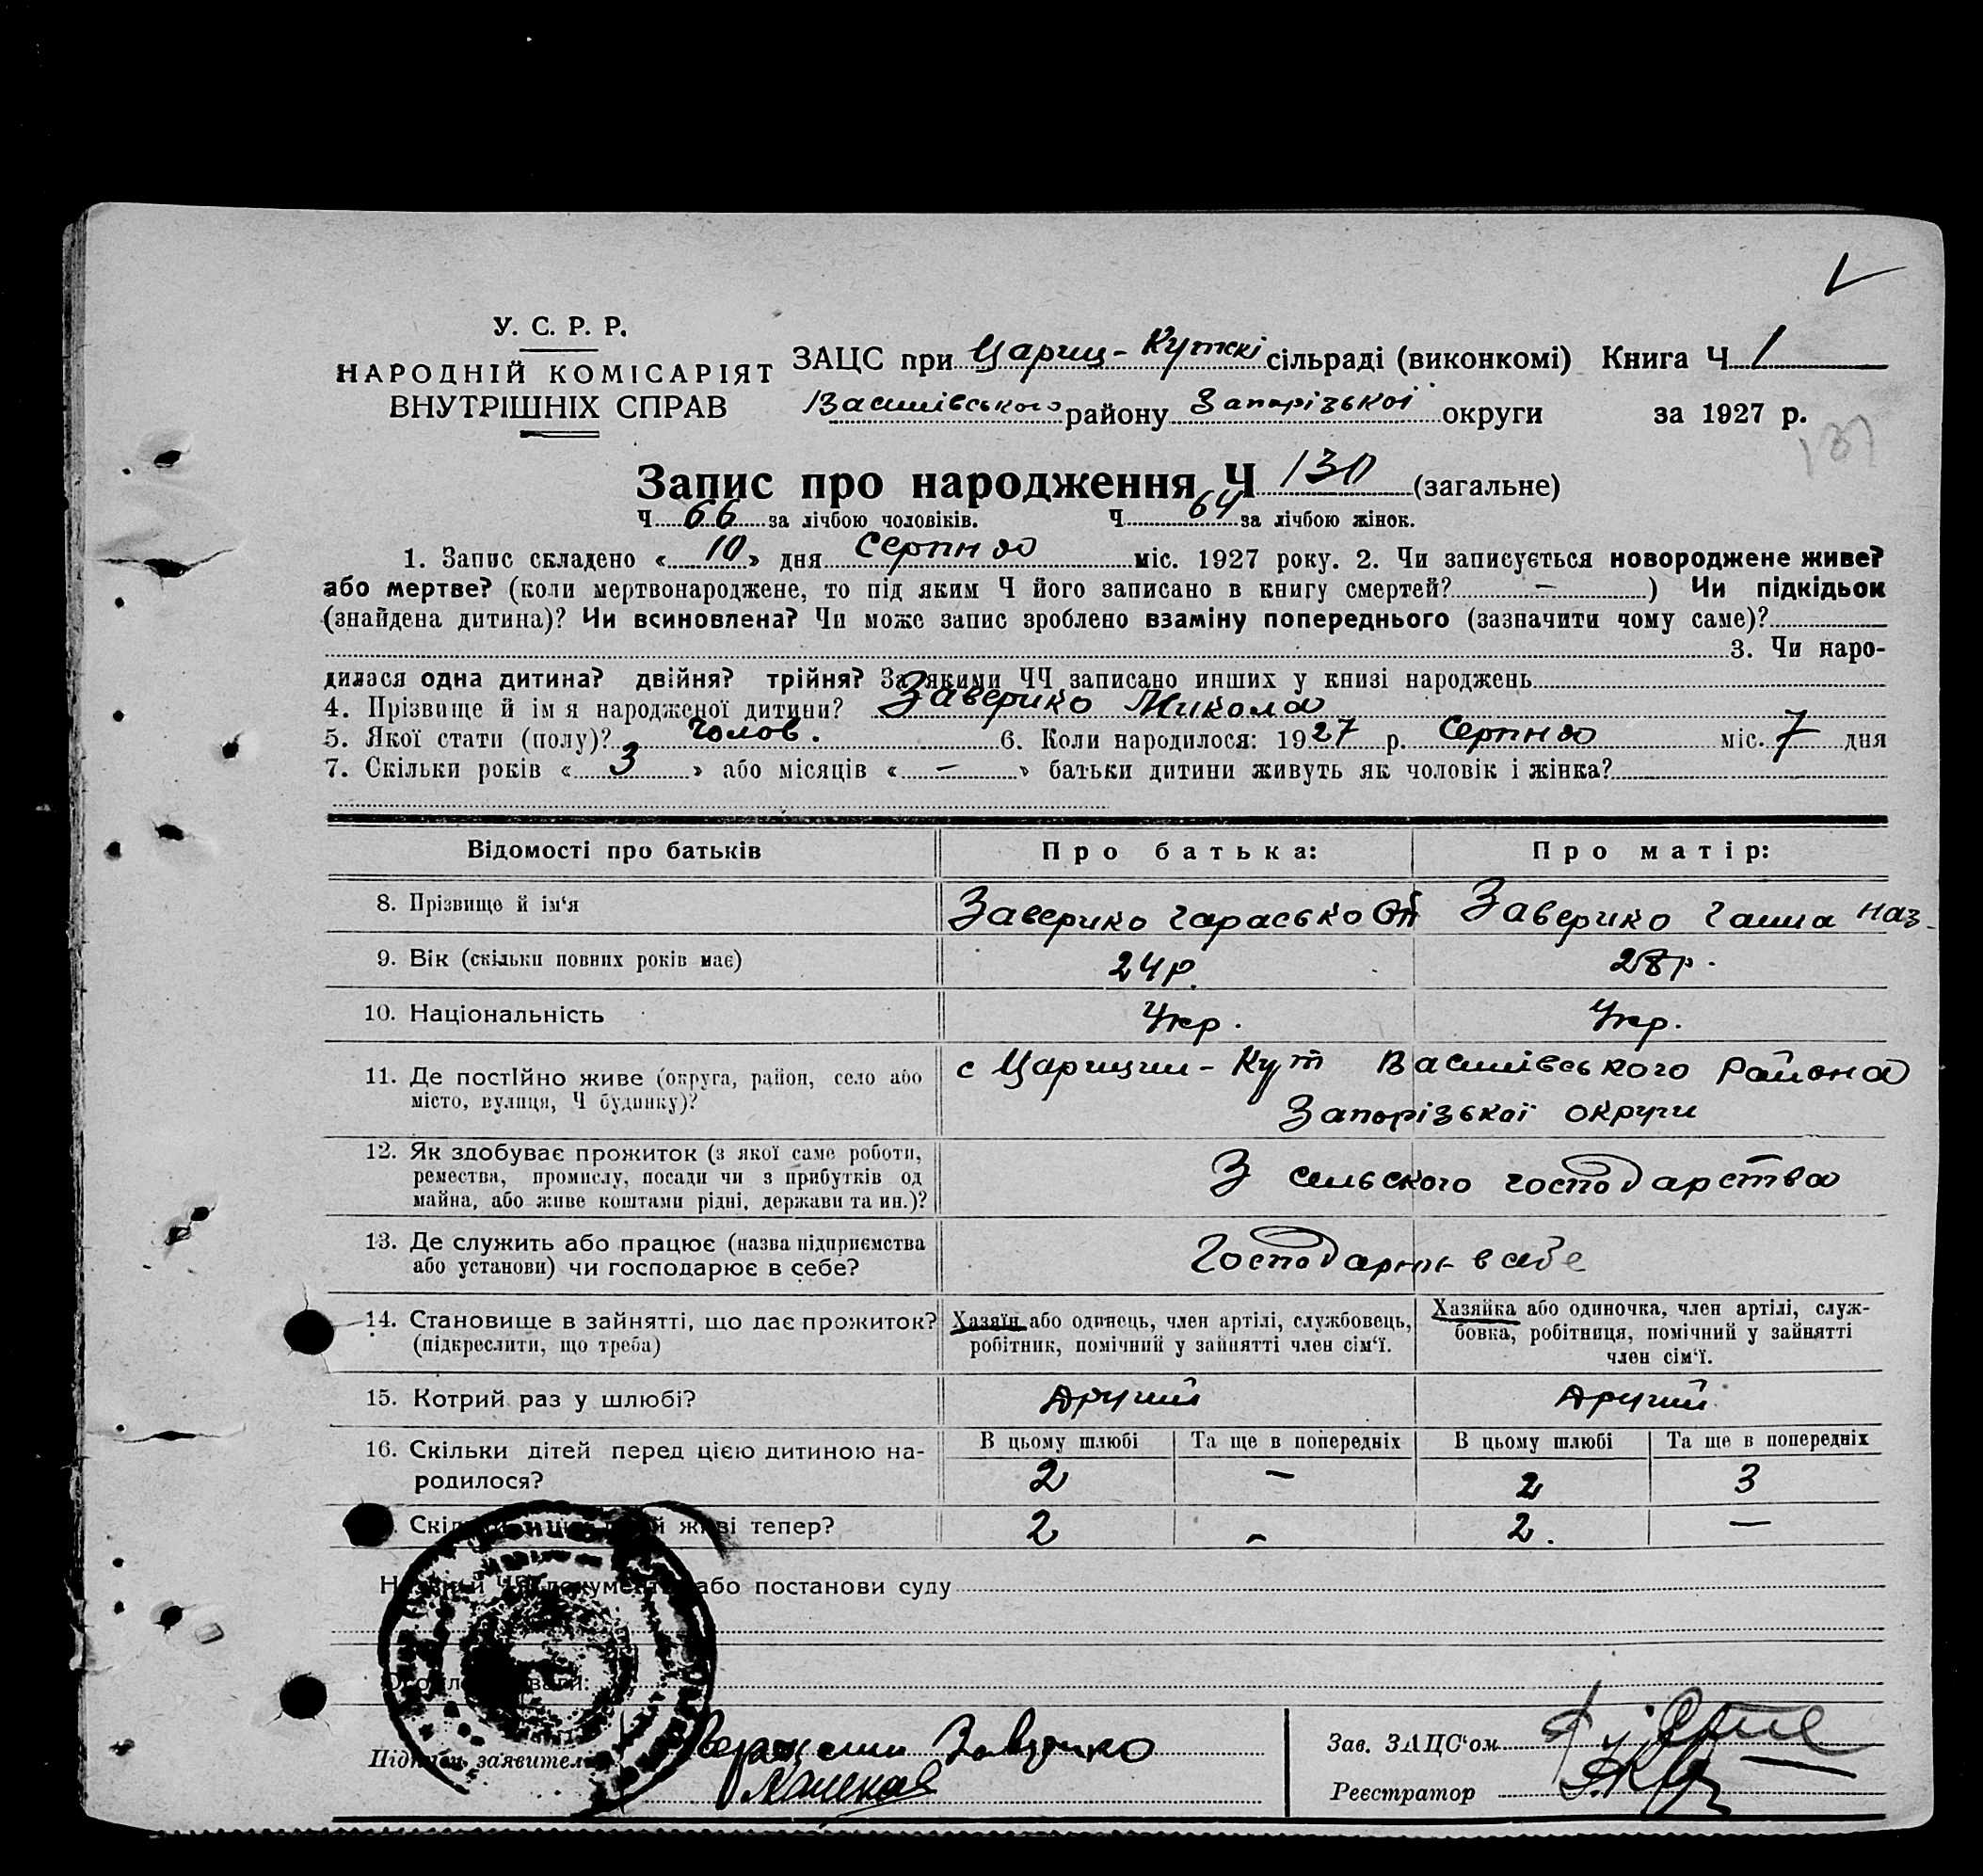 У. С. Р. Р.
НАРОДНІЙ КОМІСАРІЯТ
ВНУТРІШНІХ СПРАВ
ЗАЦС при Цариц-Кутскі сільраді (виконкомі) Книга Ч 1
Василівського району Запорізької округи за 1927 р.
137
Запис про народження Ч 130 (загальне)
Ч 66 за лічбою чоловіків. Ч 64 за лічбою жінок.
1. Запис складено « 10 » дня Серпня міс. 1927 року. 2. Чи записується новороджене живе?
або мертве? (коли мертвонароджене, то під яким Ч його записано в книгу смертей? — ) Чи підкідьок
(знайдена дитина)? Чи всиновлена? Чи може запис зроблено взаміну попереднього (зазначити чому саме)?
3. Чи наро-
дилася одна дитина? двійня? трійня? За якими ЧЧ записано инших у книзі народжень
4. Прізвище й ім я народженої дитини? Заверико Микола
5. Якої стати (полу)? Чолов. 6. Коли народилося: 1927 р. Серпня міс. 7 дня
7. Скільки років « 3 » або місяців « — » батьки дитини живуть як чоловік і жінка?
Відомості про батьків Про батька: Про матір:
8. Прізвище й ім'я Заверико Гарасько Заверико Гаша Наз.
9. Вік (скільки повних років має) 24 р. 28 р.
10. Національність Укр. Укр.
11. Де постІйно живе (округа, район, село або с Царицин-Кут Василівського Района
місто, вулиця, Ч будинку)? Запорізької округи
12. Як здобуває прожиток (з якої саме роботи,
ремества, промислу, посади чи з прибутків од З сельского господарства
майна, або живе коштами рідні, держави та ин.)?
13. Де служить або працює (назва підприємства
або установи) чи господарює в себе? в себе
14. Становище в зайнятті, що дає прожиток? Хазяїн або одинець, член артілі, службовець, Хазяйка або одиночка, член артілі, служ-
(підкреслити, що треба) робітник, помічний у зайнятті член сім'ї. бовка, робітниця, помічний у зайнятті
член сім'ї.
15. Котрий раз у шлюбі? Другий Другий
16. Скільки дітей перед цією дитиною на- В цьому шлюбі Та ще в попередніх В цьому шлюбі Та ще в попередніх
родилося? 2 — 2 3
живі тепер? 2 - 2. —
або постанови суду
Підпис заявителя
Зав. ЗАЦС'ом
Реєстратор